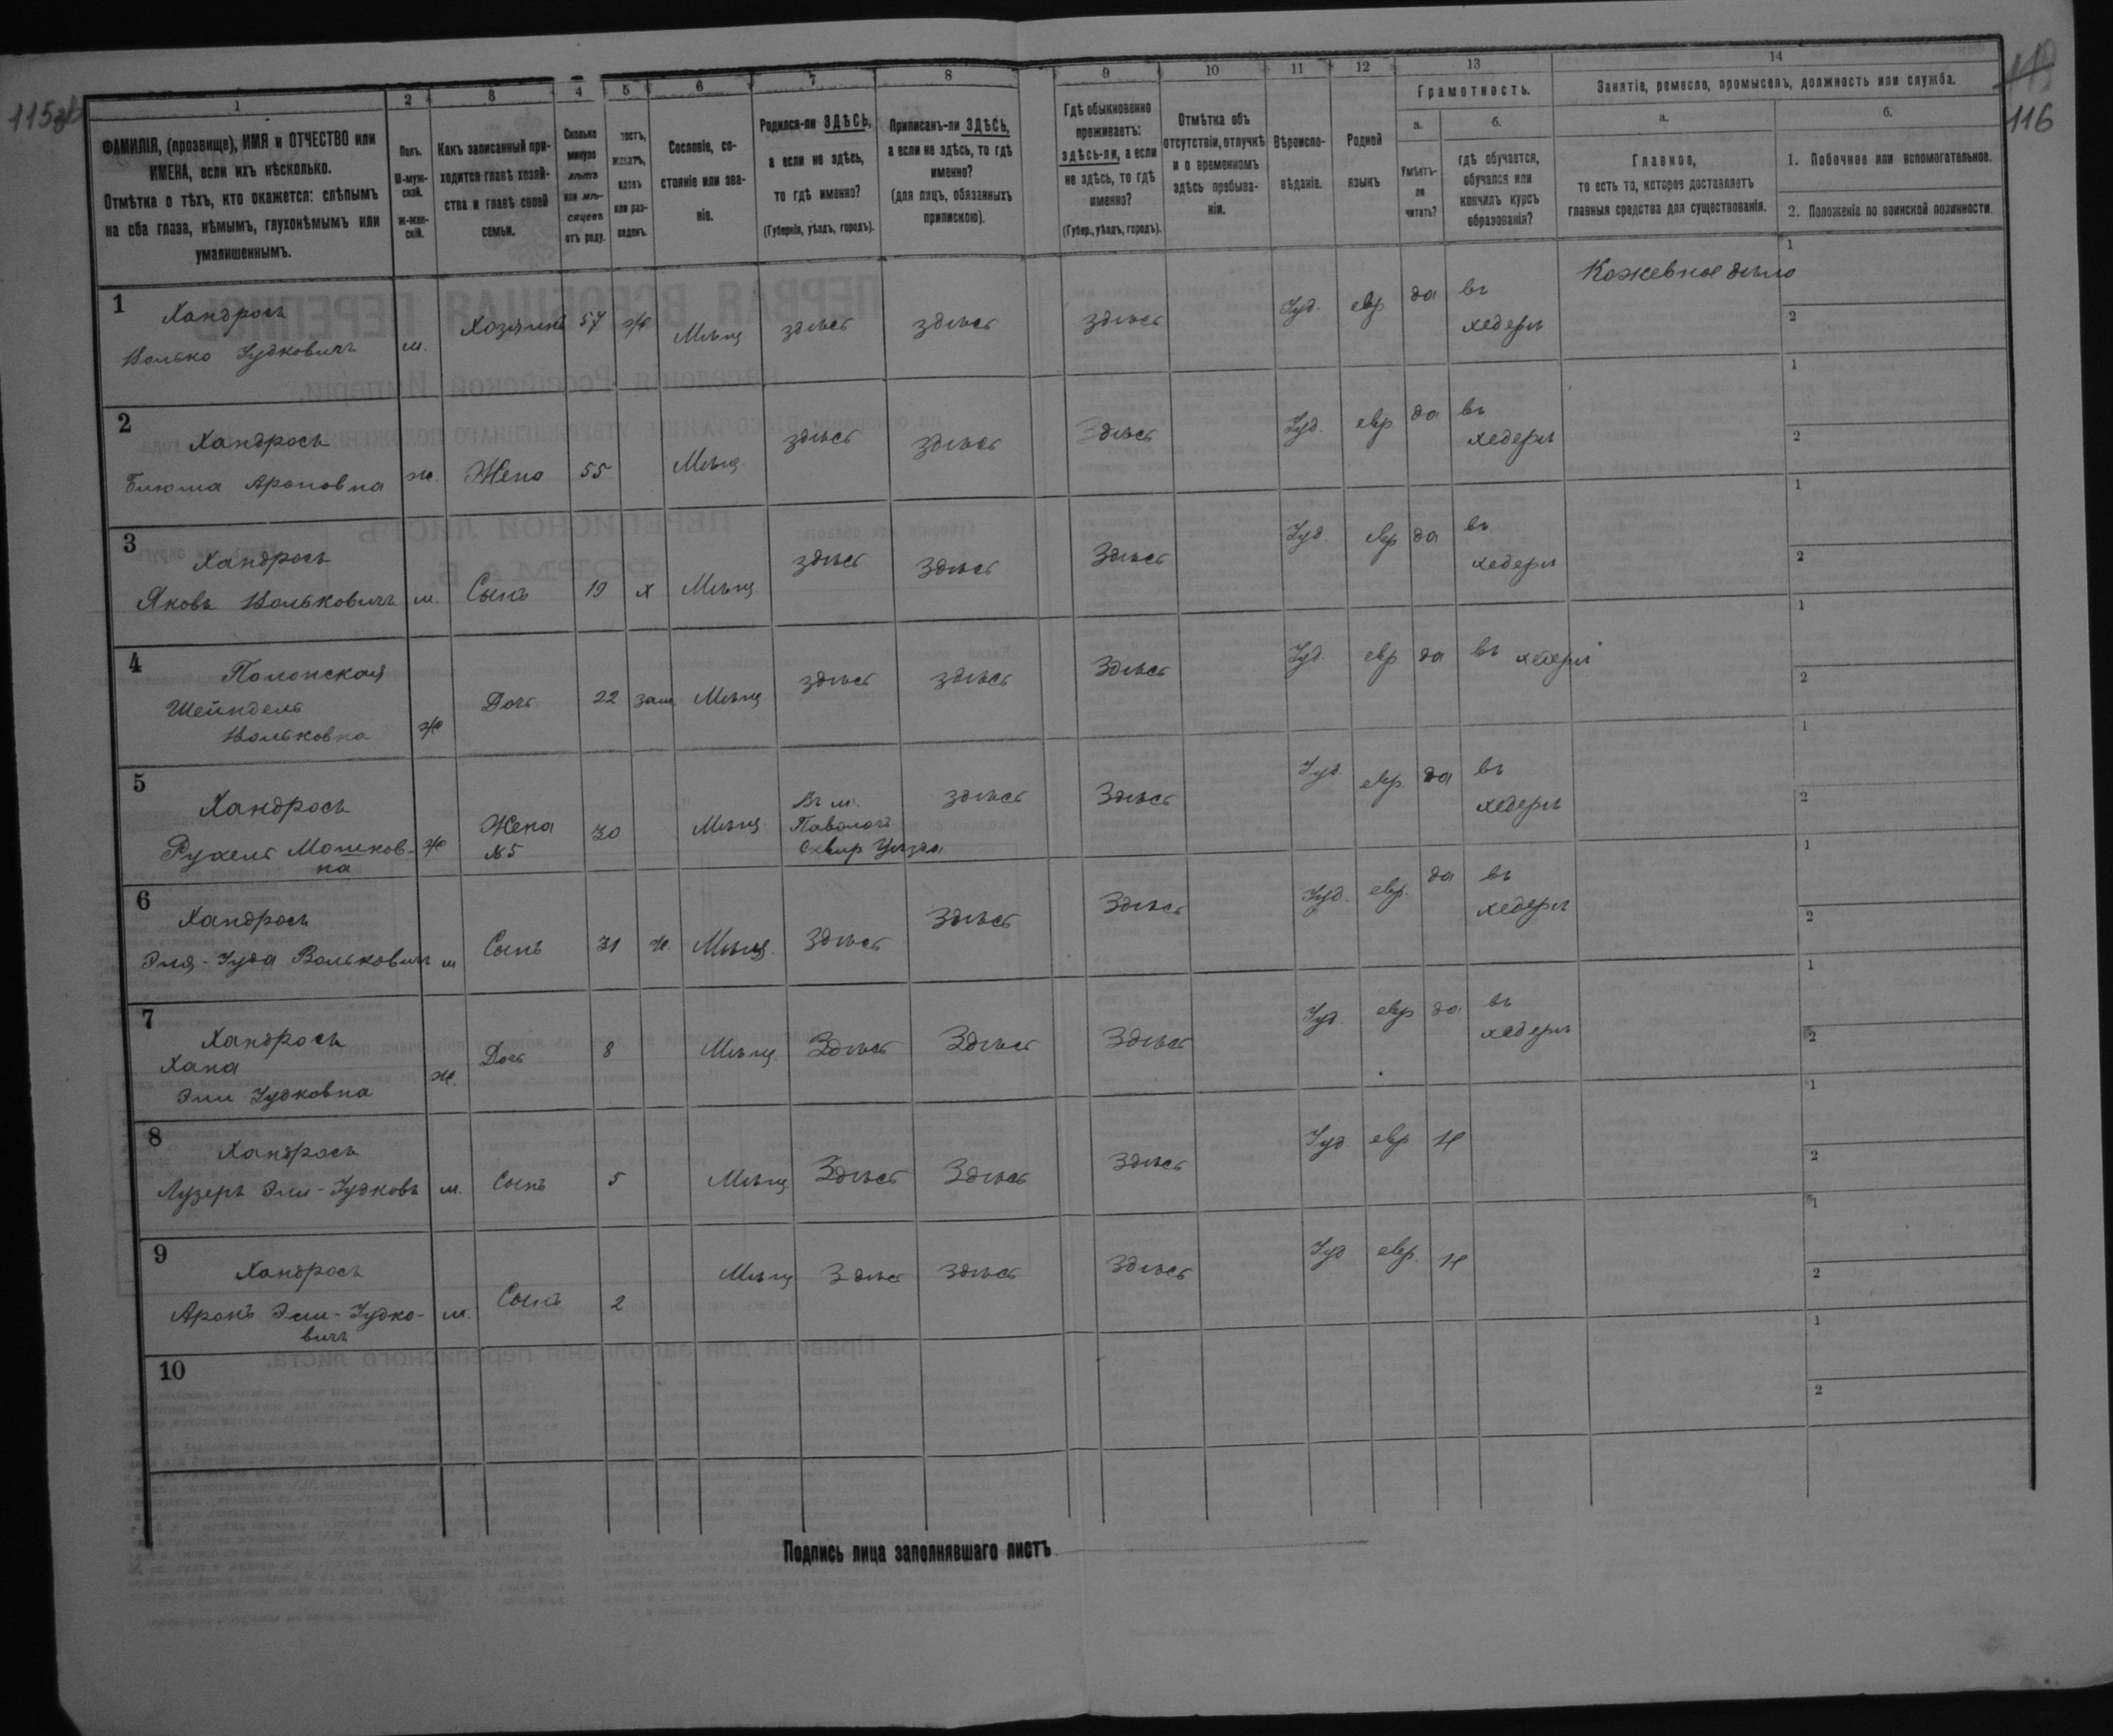 115об
119
116
1
2
3
4
5
6
7
8
9
10
11
12
13
14
ФАМИЛІЯ, (прозвище), ИМЯ и ОТЧЕСТВО или
ИМЕНА, если ихъ нѣсколько.
Отмѣтка о тѣхъ, кто окажется: слѣпымъ
на оба глаза, нѣмымъ, глухонѣмымъ или
умалишеннымъ.
Полъ.
М-муж-
ской.
Ж-жен-
скій.
Какъ записанный при-
ходится главѣ хозяй-
ства и главѣ своей
семьи.
Сколько
минуло
лѣтъ
или мѣ-
сяцевъ
отъ роду.
тостъ,
женатъ,
вдовъ
или раз-
веденъ.
Сословіе, со-
стояніе или зва-
ніе.
Родился-ли ЗДѢСЬ,
а если не здѣсь,
то гдѣ именно?
(Губернія, уѣздъ, городъ).
Приписанъ-ли ЗДѢСЬ,
а если не здѣсь, то гдѣ
именно?
(для лицъ, обязанныхъ
припискою).
Гдѣ обыкновенно
проживаетъ:
здѣсь-ли, а если
не здѣсь, то гдѣ
именно?
(Губер., уѣздъ, городъ).
Отмѣтка объ
отсутствіи, отлучкѣ
и о временномъ
здѣсь пребыва-
ніи.
Вѣроиспо-
вѣданіе.
Родной
языкъ
Грамотность.
а.
Умѣетъ-
ли
читать?
б.
гдѣ обучается,
обучался или
кончилъ курсъ
образованія?
Занятіе, ремесло, промыселъ, должность или служба.
а.
Главное,
то есть то, которое доставляетъ
главныя средства для существованія.
б.
1. Побочное или вспомогательное.
2. Положеніе по воинской повинности.
1
Хандрось
Волько Іудковичъ
м.
Хозяинъ
57
ж
Мѣщ
здѣсь
здѣсь
здѣсь
Іуд.
евр
да
въ
хедерѣ
Кожевное дѣло
1
2
2
Хандрось
Ароновна
ж.
Жена
55
Мѣщ.
здѣсь
здѣсь
здѣсь
Іуд.
евр
да
въ
хедерѣ
1
2
3
Хандрось
Яковъ Вольковичъ
м.
Сынъ
19
х
Мѣщ.
здѣсь
Здѣсь
Здѣсь
Іуд.
евр
да
въ
хедерѣ
1
2
4
Полонская
Шейндель
Вольковна
ж
Дочь
22
зам
Мѣщ
здѣсь
здѣсь
Здѣсь
Іуд.
евр
да
въ хедерѣ
1
2
5
Хандрось
Рухель Мошков-
на
ж
Жена
№ 5
30
Мѣщ
Въ м.
Паволочь
Сквир Уѣзда
здѣсь
Здѣсь
Іуд
евр.
да
въ
хедерѣ
1
2
6
Хандрось
Эля-Іуда Вольковичъ
м
Сынъ
31
ж.
Мѣщ.
Здѣсь
Здѣсь
Здѣсь
Іуд.
евр.
да
въ
хедерѣ
1
2
7
Хандрось
Хана
Эли Іудковна
ж.
Дочь
8
Мѣщ.
Здѣсь
Здѣсь
Здѣсь
Іуд.
евр
да
въ
хедерѣ
1
2
8
Хандрось
Лузеръ Эли-Іудковъ
м.
Сынъ
5
Мѣщ.
Здѣсь
Здѣсь
Здѣсь
Іуд
евр
н
1
2
9
Хандрось
Аронъ Эли-Іудко-
вичъ
м.
Сынъ
2
Мѣщ
Здѣсь
Здѣсь
Здѣсь
Іуд
евр.
н
1
2
10
1
2
Подпись лица заполнявшаго листъ